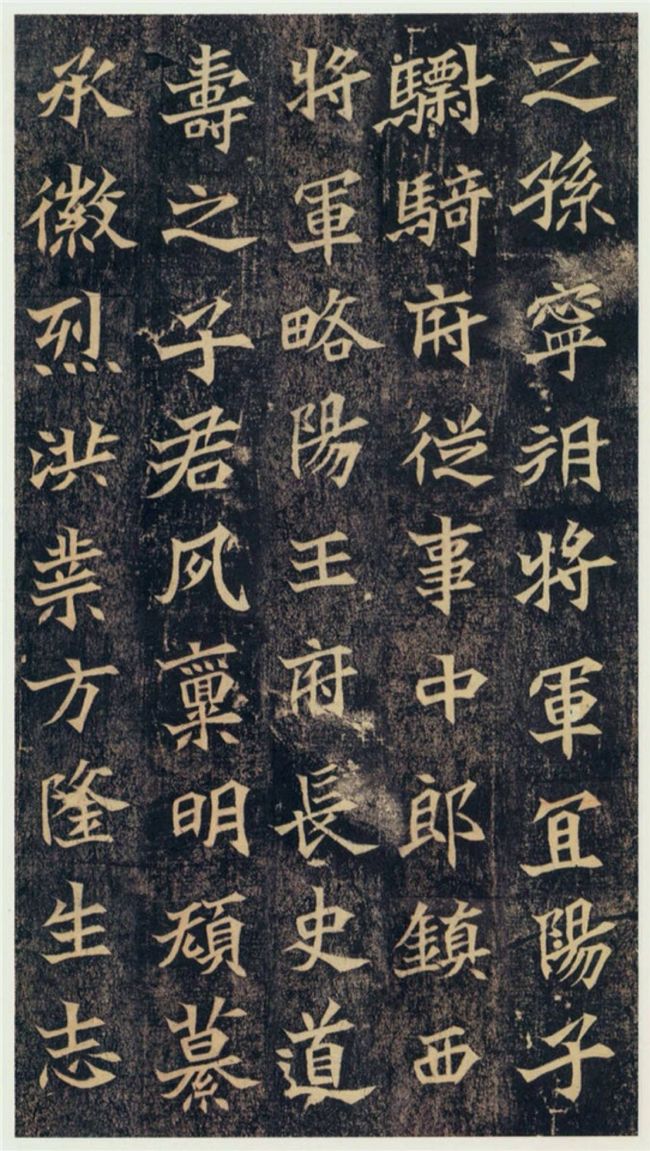 之孫寧朔將軍冝陽子
驃騎府從事中郎鎮西
將軍略陽王府長史道
壽之子君夙稟明穎纂
承徽烈洪業方隆生志